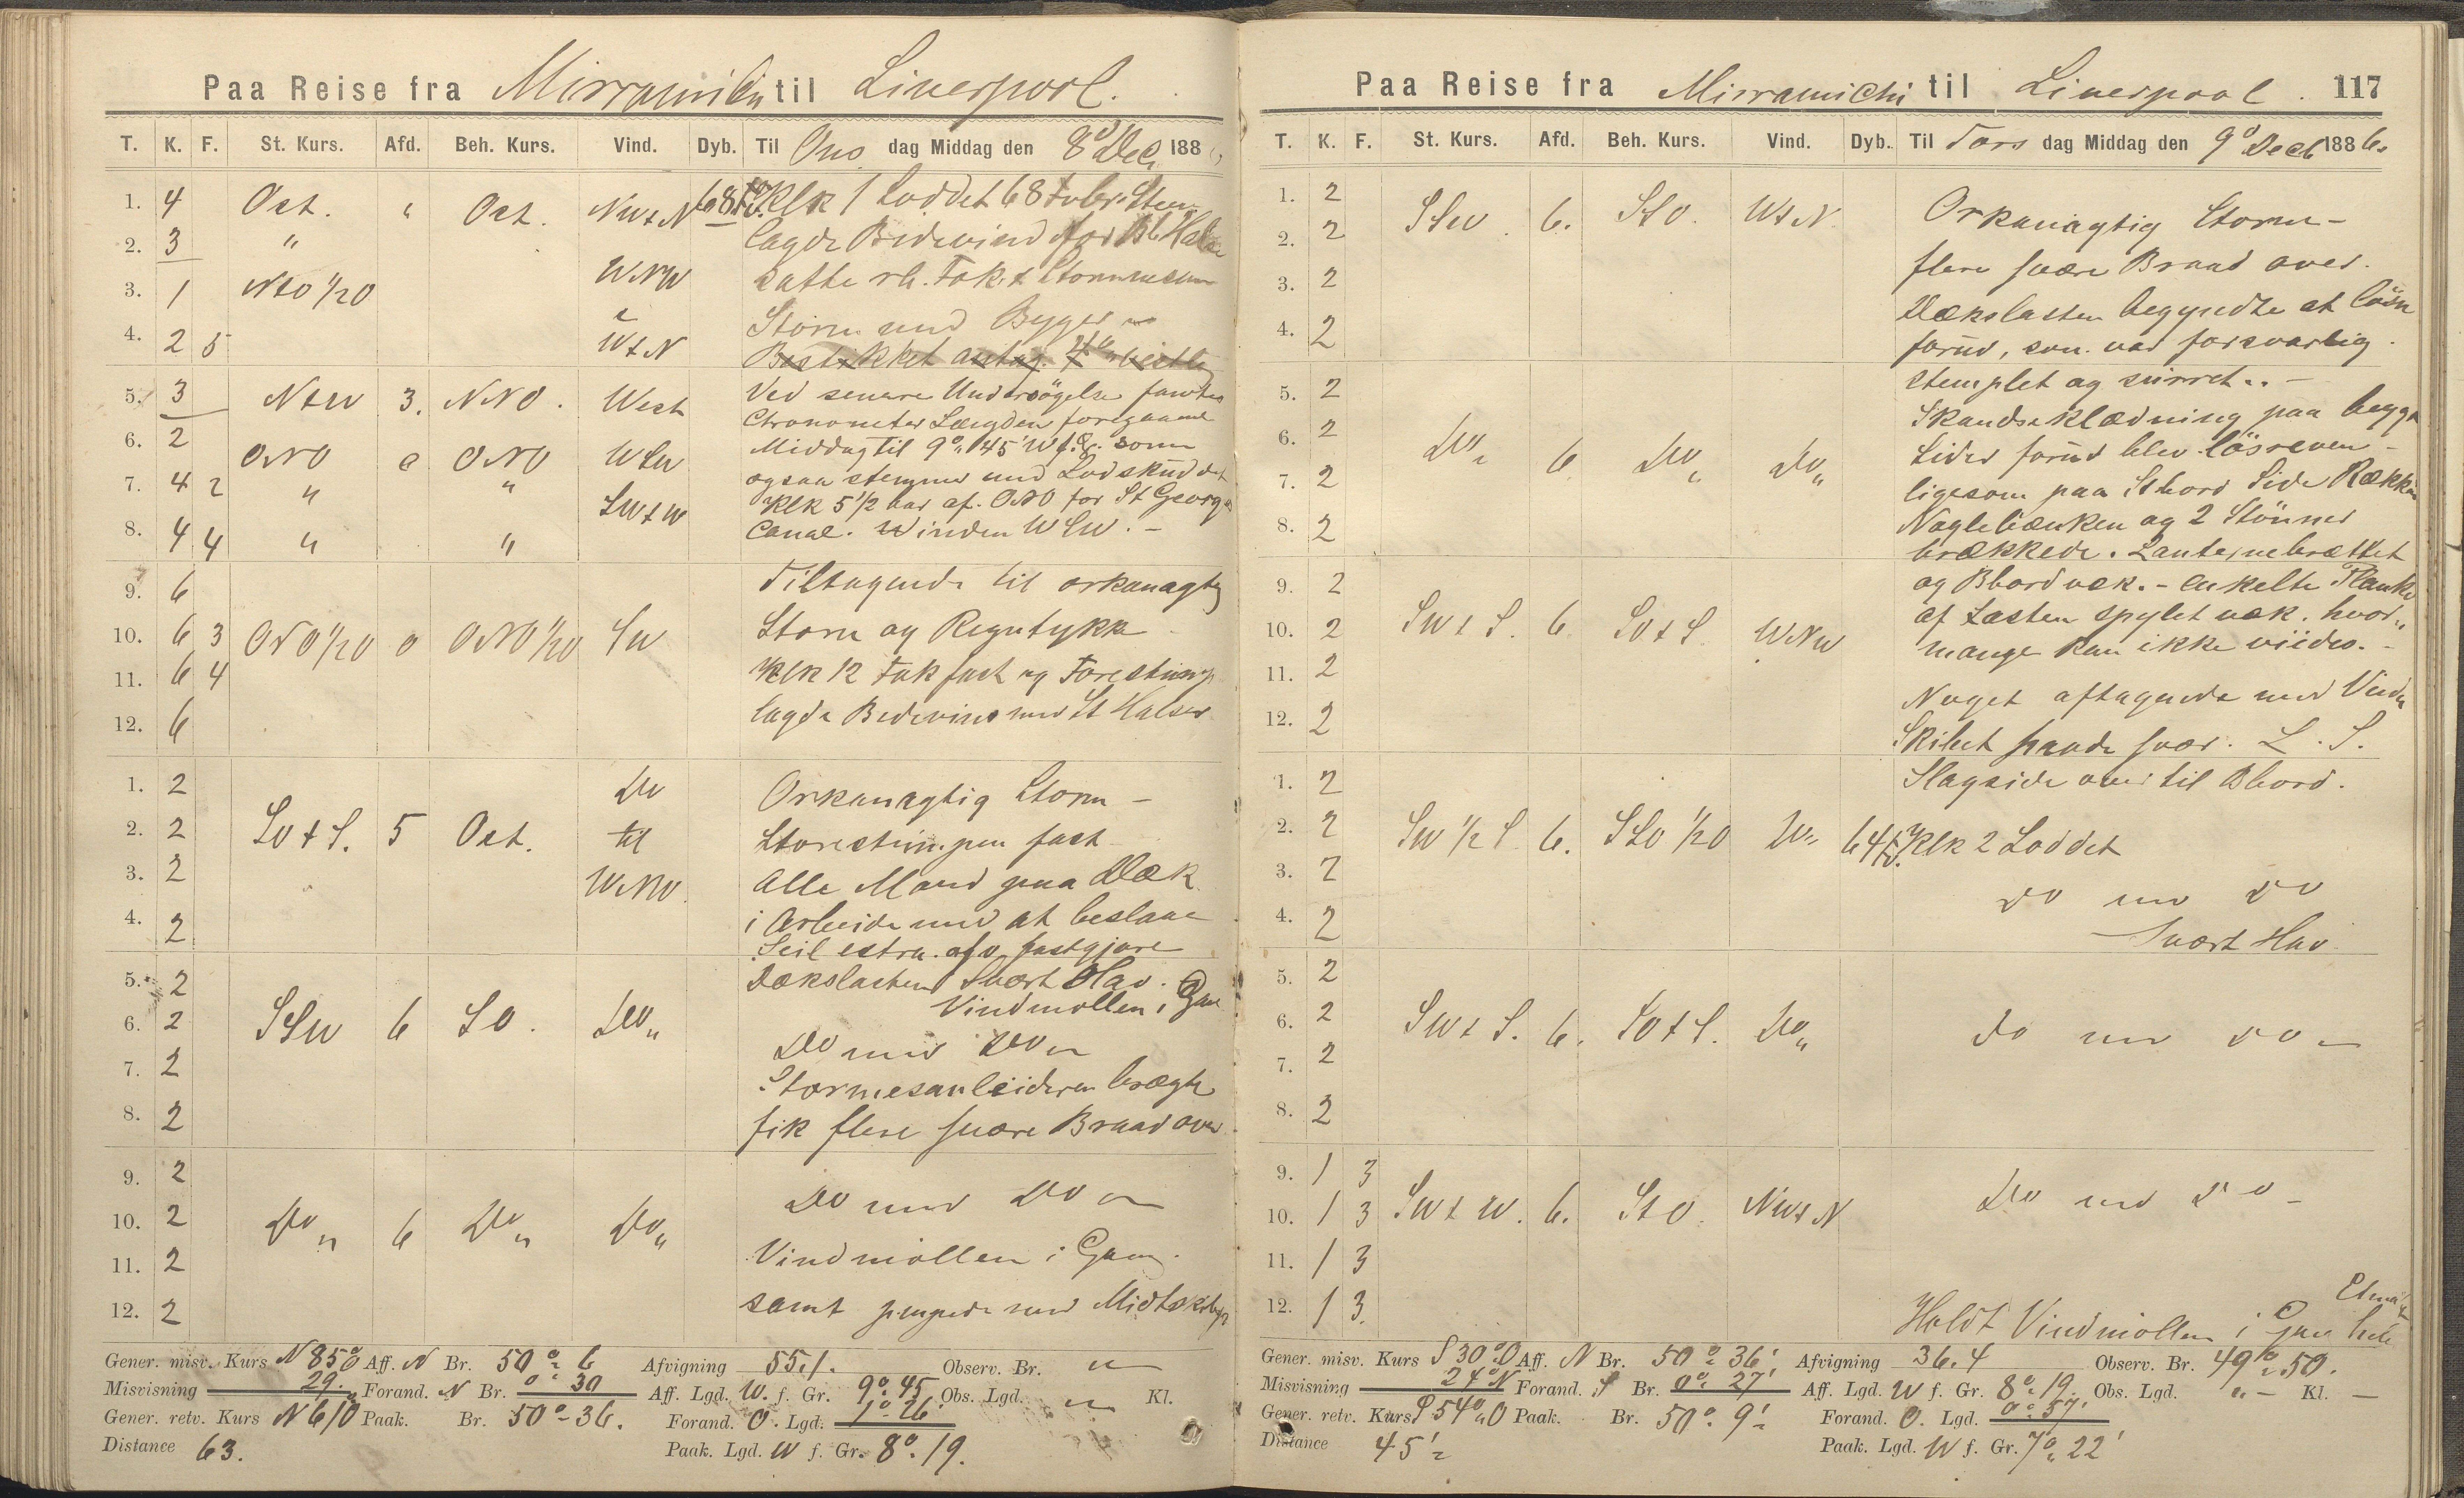 Paa Reise fra Mirramichi til Liverpool.
T. K. F. St. Kurs. Afd. Beh. Kurs. Vind. Dyb. Til Ons dag Middag den 8de Dec 188
1. 4 Ost. " Ost. NWtN 68 Klk 1 Loddet 68
2. 3 " lagde Bidevind for Bb Halse
3. 1 NtO 1/2 O WNW satte rb. Fok & Stormmesan
4. 2 5 WtN Storm med Byger
Bestikket
5. 3 NtW 3. NNO. West Ved senere Undersögelse fandtes
Chronometer Længden foregaaende
6. 2 ONO o ONO WSW Middag til 9° 45' W f. G. som
7. 4 2 " " SWtW ogsaa stemmer med Lodskuddet
Klk 5 1/2 bar af ONO for St Georges
8. 4 4 " " Canal. Winden WSW. -
9. 6 Tiltagende til orkanagtig
10. 6 3 ONO 1/2 O o ONO 1/2 O SW Storm og Regntykke
11. 6 4 Klk 12 Fok fast og Forestump
12. 6 lagde Bidevind med St Halser
1. 2 Do Orkanagtig Storm -
2. 2 SOtS. 5 Ost. til Storestumpen fast
3. 2 WNW. Alle Mand paa Dæk
4. 2 i Arbeide med at beslaae
Seil extra. fastgjøre
5. 2 Dækslasten Svært Hav.
Vindmöllen i Gang
6. 2 SSW 6 SO. Do " Do med Do
7. 2 Stormesanleideren brægte
8. 2 fik flere svære Braad over
9. 2 Do med Do
10. 2 Do " 6 Do " Do "
11. 2 Vindmöllen i Gang.
12. 2 samt pumpede med Midtskibs
Gener. misv. Kurs N 85° O Aff. N Br. 50° 6 Afvigning 55.1. Observ. Br. "
Misvisning 29. Forand. N Br. 0° 30 Aff. Lgd. W. f. Gr. 9° 45 Obs. Lgd. " Kl.
Gener. retv. Kurs N 61 O Paak. Br. 50° 36. Forand. O. Lgd. 1° 26'
Distance 63. Paak. Lgd. W f. Gr. 8° 19.
Paa Reise fra Mirramichi til Liverpool. 117
T. K. F. St. Kurs. Afd. Beh. Kurs. Vind. Dyb. Til Tors dag Middag den 9de Decb 1886.
1. 2 SSW. 6. StO. WtN Orkanagtig Storm -
2. 2 flere svære Braad over.
3. 2 Dækslasten begyndte at lösne
4. 2 forud, som var forsvarlig
stemplet og surret. -
5. 2 Skandseklædning paa begge
6. 2 Do " 6 Do " Do " Sider forud blev lösreven -
7. 2 ligesom paa Stbord Side Rækken
8. 2 Naglebænken og 2 Stönner
brækkede. Lanternebrættet
9. 2 og Bbord væk. - enkelte Planker
10. 2 SWtS. 6 SOtS. WNW af Lasten spylet væk. hvor-
mange kan ikke viides. -
11. 2 Noget aftagende med Vinden
12. 2 Skibet svær. L. S.
1. 2 Slagside over til Bbord.
2. 2 SW 1/2 S. 6. SSO 1/2 O Do 64 Klk 2 Loddet
3. 2 Do med Do
4. 2 Svært Hav
5. 2
6. 2 SWtS. 6. SOtS. Do " do med do -
7. 2
8. 2
9. 1 3
10. 1 3 SWtW. 6. StO. NWtN Do med Do -
11. 1 3
12. 1 3. Holdt Vindmöllen i Gang hele
Etmal
Gener. misv. Kurs S 30° O Aff. N Br. 50° 36' Afvigning 36.4 Observ. Br. 49° 50.
Misvisning 24° Forand. S Br. 0° 27' Aff. Lgd. W f. Gr. 8° 19. Obs. Lgd. " - Kl. -
Gener. retv. Kurs S 54° O Paak. Br. 50° 9' Forand. O. Lgd. 0° 57'
Distance 45' Paak. Lgd. W f. Gr. 7° 22'